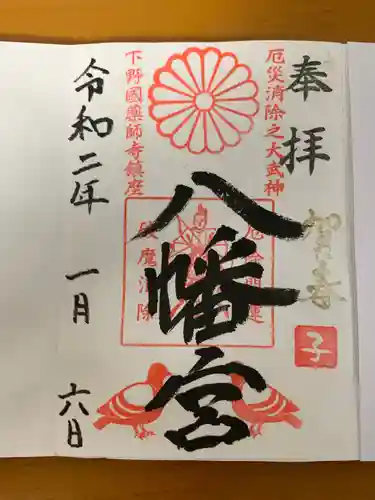 奉拝
賀春
子
厄災消除之大武神
八幡宮
厄除開運
破魔消除
下野國藥師寺鎮座
令和二年 一月 六日